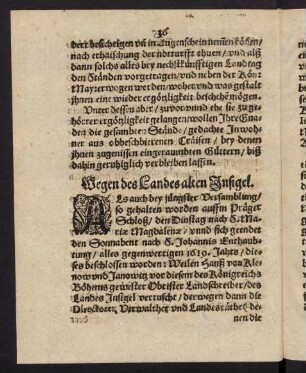 36
dert besichtigen vñ in Augenschein nemen können/
nach erhaischung der notturfft thuen/ vnd alß
dann solchs alles bey nechstkünfftigen Landtag
den Ständen vorgetragen/ vnd neben der Kön:
Mayter wogen werden/ woher vnd was gestalt
ihnen eine wieder ergötzligkeit beschehe mögen.
Vnter dessen aber/ zuvor vnnd ehe sie zuge-
hörter ergötzligkeit gelangen/ wollen Ihre Gna-
den die gesambten Stände/ gedachte Inwoh-
ner aus obbeschriebenen Cräisen/ bey denen
jhnen zugenissen eingeraumbten Gütern/ biß
dahin geruhiglich verbleiben lassen.
Wegen des Landes alten Insigel.
ALs auch bey jüngster Versamblung/
so gehalten worden auffm Präger
Schloß/ den Dinstag nach S. Ma-
riæ Magdalenæ/ vnnd sich geendet
den Sonnabent nach S. Johannis Enthaub-
tung/ alles gegenwertigen 1619. Jahrs/ die-
ses beschlossen worden: Weilen Hanß von Kle-
now vnd Janowitz vor diesem des Königreichs
Böhems gewester Obrister Landschreiber/ des
Landes Insigel vertuscht/ derwegen dann die
Directores, Verwalther vnd Landesräthe/ de-
nen die